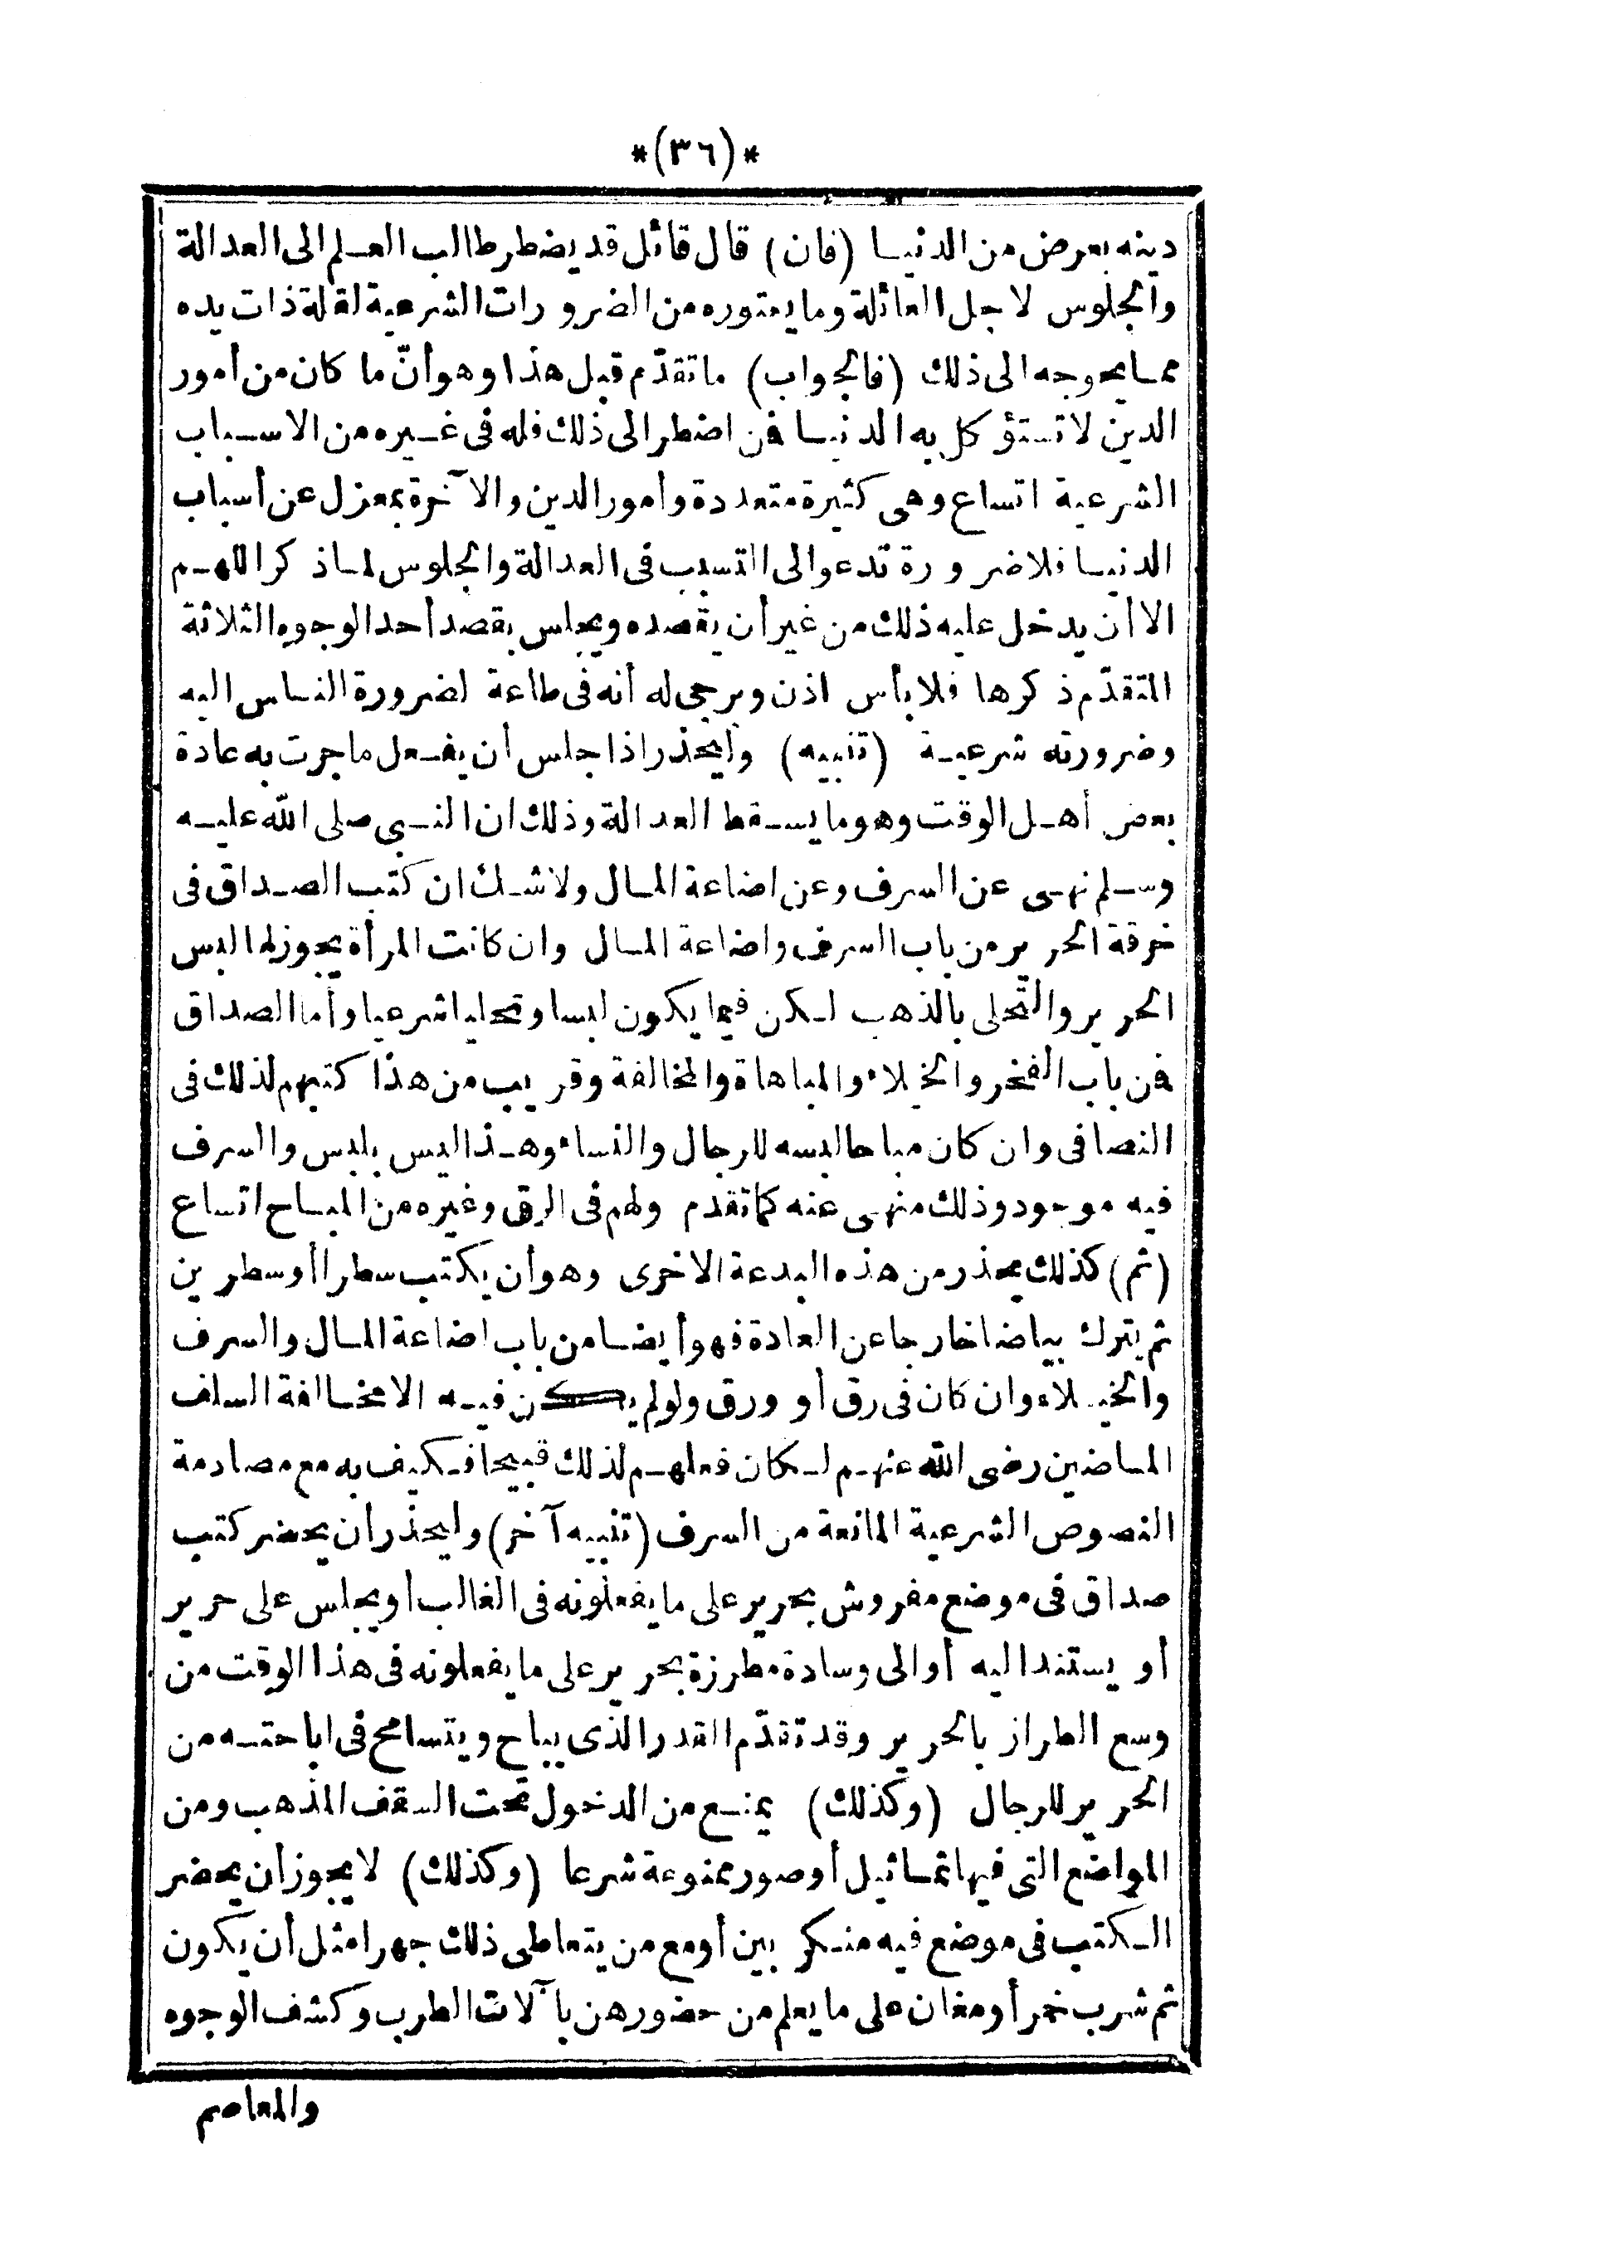 *(٣٦)*
دينه بعرض من الدنيا (فان) قال قائل قد يضطر طالب العلم الى العدالة
والجلوس لاجل العائلة وما يعتوره من الضرورات الشرعية لقلة ذات يده
مما يحوجه الى ذلك (فالجواب) ما تقدّم قبل هذا وهو أنّ ما كان من أمور
الدين لا تستؤكل به الدنيا فمن اضطر الى ذلك فله فى غيره من الاسباب
الشرعية اتساع وهى كثيرة متعددة وأمور الدين والآخرة بمعزل عن أسباب
الدنيا فلا ضرورة تدعو الى التسبب فى العدالة والجلوس لما ذكر اللهم
الا أن يدخل عليه ذلك من غير أن يقصده ويجلس بقصد أحد الوجوه الثلاثة
المتقدّم ذكرها فلا بأس اذن ويرجى له أنه فى طاعة لضرورة الناس اليه
وضرورته شرعية (تنبيه) وليحذر اذا جلس أن يفعل ما جرت به عادة
بعض أهل الوقت وهو ما يسقط العدالة وذلك ان النبى صلى الله عليه
وسلم نهى عن السرف وعن اضاعة المال ولا شك ان كتب الصداق فى
خرقة الحرير من باب السرف واضاعة المال وان كانت المرأة يجوز لها لبس
الحرير والتحلى بالذهب لكن فيما يكون لبسا وتحليا شرعيا وأما الصداق
فمن باب الفخر والخيلاء والمباهاة والمخالفة وقريب من هذا كتبهم لذلك فى
النصافى وان كان مباحا لبسه للرجال والنساء وهذا ليس بلبس والسرف
فيه موجود وذلك منهى عنه كما تقدم ولهم فى الرق وغيره من المباح اتساع
(ثم) كذلك يحذر من هذه البدعة الاخرى وهو أن يكتب سطرا أو سطرين
ثم يترك بياضا خارجا عن العادة فهو أيضا من باب اضاعة المال والسرف
والخيلاء وان كان فى رق أو ورق ولو لم يكن فيه الا مخالفة السلف
الماضين رضى الله عنهم لكان فعلهم لذلك قبيحا فكيف به مع مصادمة
النصوص الشرعية المانعة من السرف (تنبيه آخر) وليحذر أن يحضر كتب
صداق فى موضع مفروش بحرير على ما يفعلونه فى الغالب أو يجلس على حرير
أو يستند اليه أو الى وسادة مطرزة بحرير على ما يفعلونه فى هذا الوقت من
وسع الطراز بالحرير وقد تقدّم القدر الذى يباح ويتسامح فى اباحته من
الحرير للرجال (وكذلك) يمنع من الدخول تحت السقف المذهب ومن
المواضع التى فيها تماثيل أو صور ممنوعة شرعا (وكذلك) لا يجوز أن يحضر
الكتب فى موضع فيه منكر بين أو مع من يتعاطى ذلك جهرا مثل أن يكون
ثم شرب خمر أو مغان على ما يعلم من حضورهن بآلات الطرب وكشف الوجوه
والمعاصم